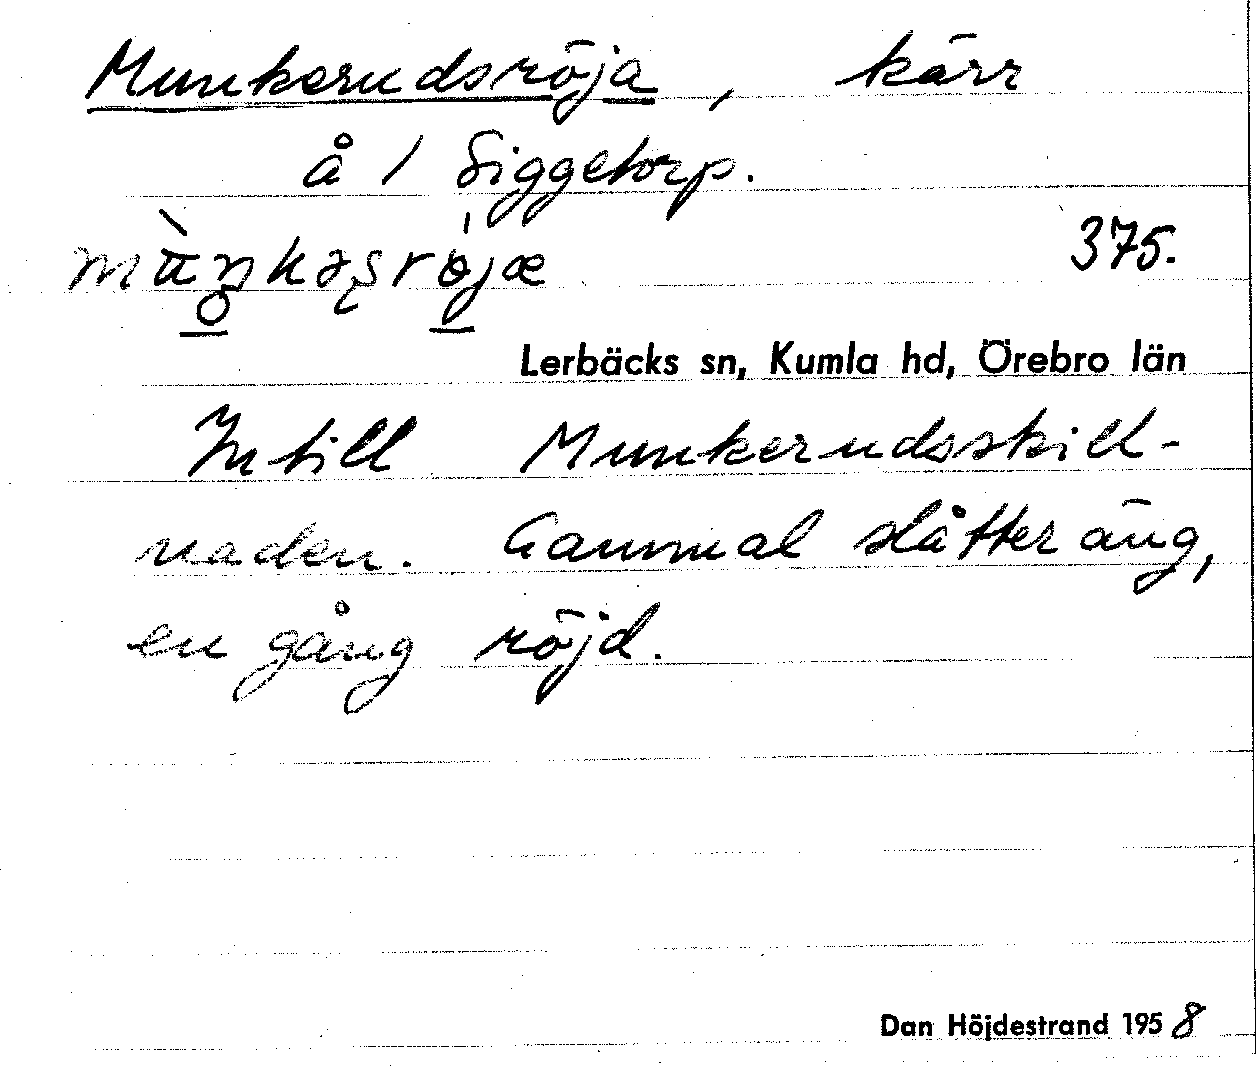 Munkerudsröja, kärr
å 1 Siggetorp.
375.
Lerbäcks sn, Kumla hd, Örebro län
Intill Munkerudsskill-
naden. Gammal slåtteräng,
en gång röjd.
Dan Höjdestrand 1958